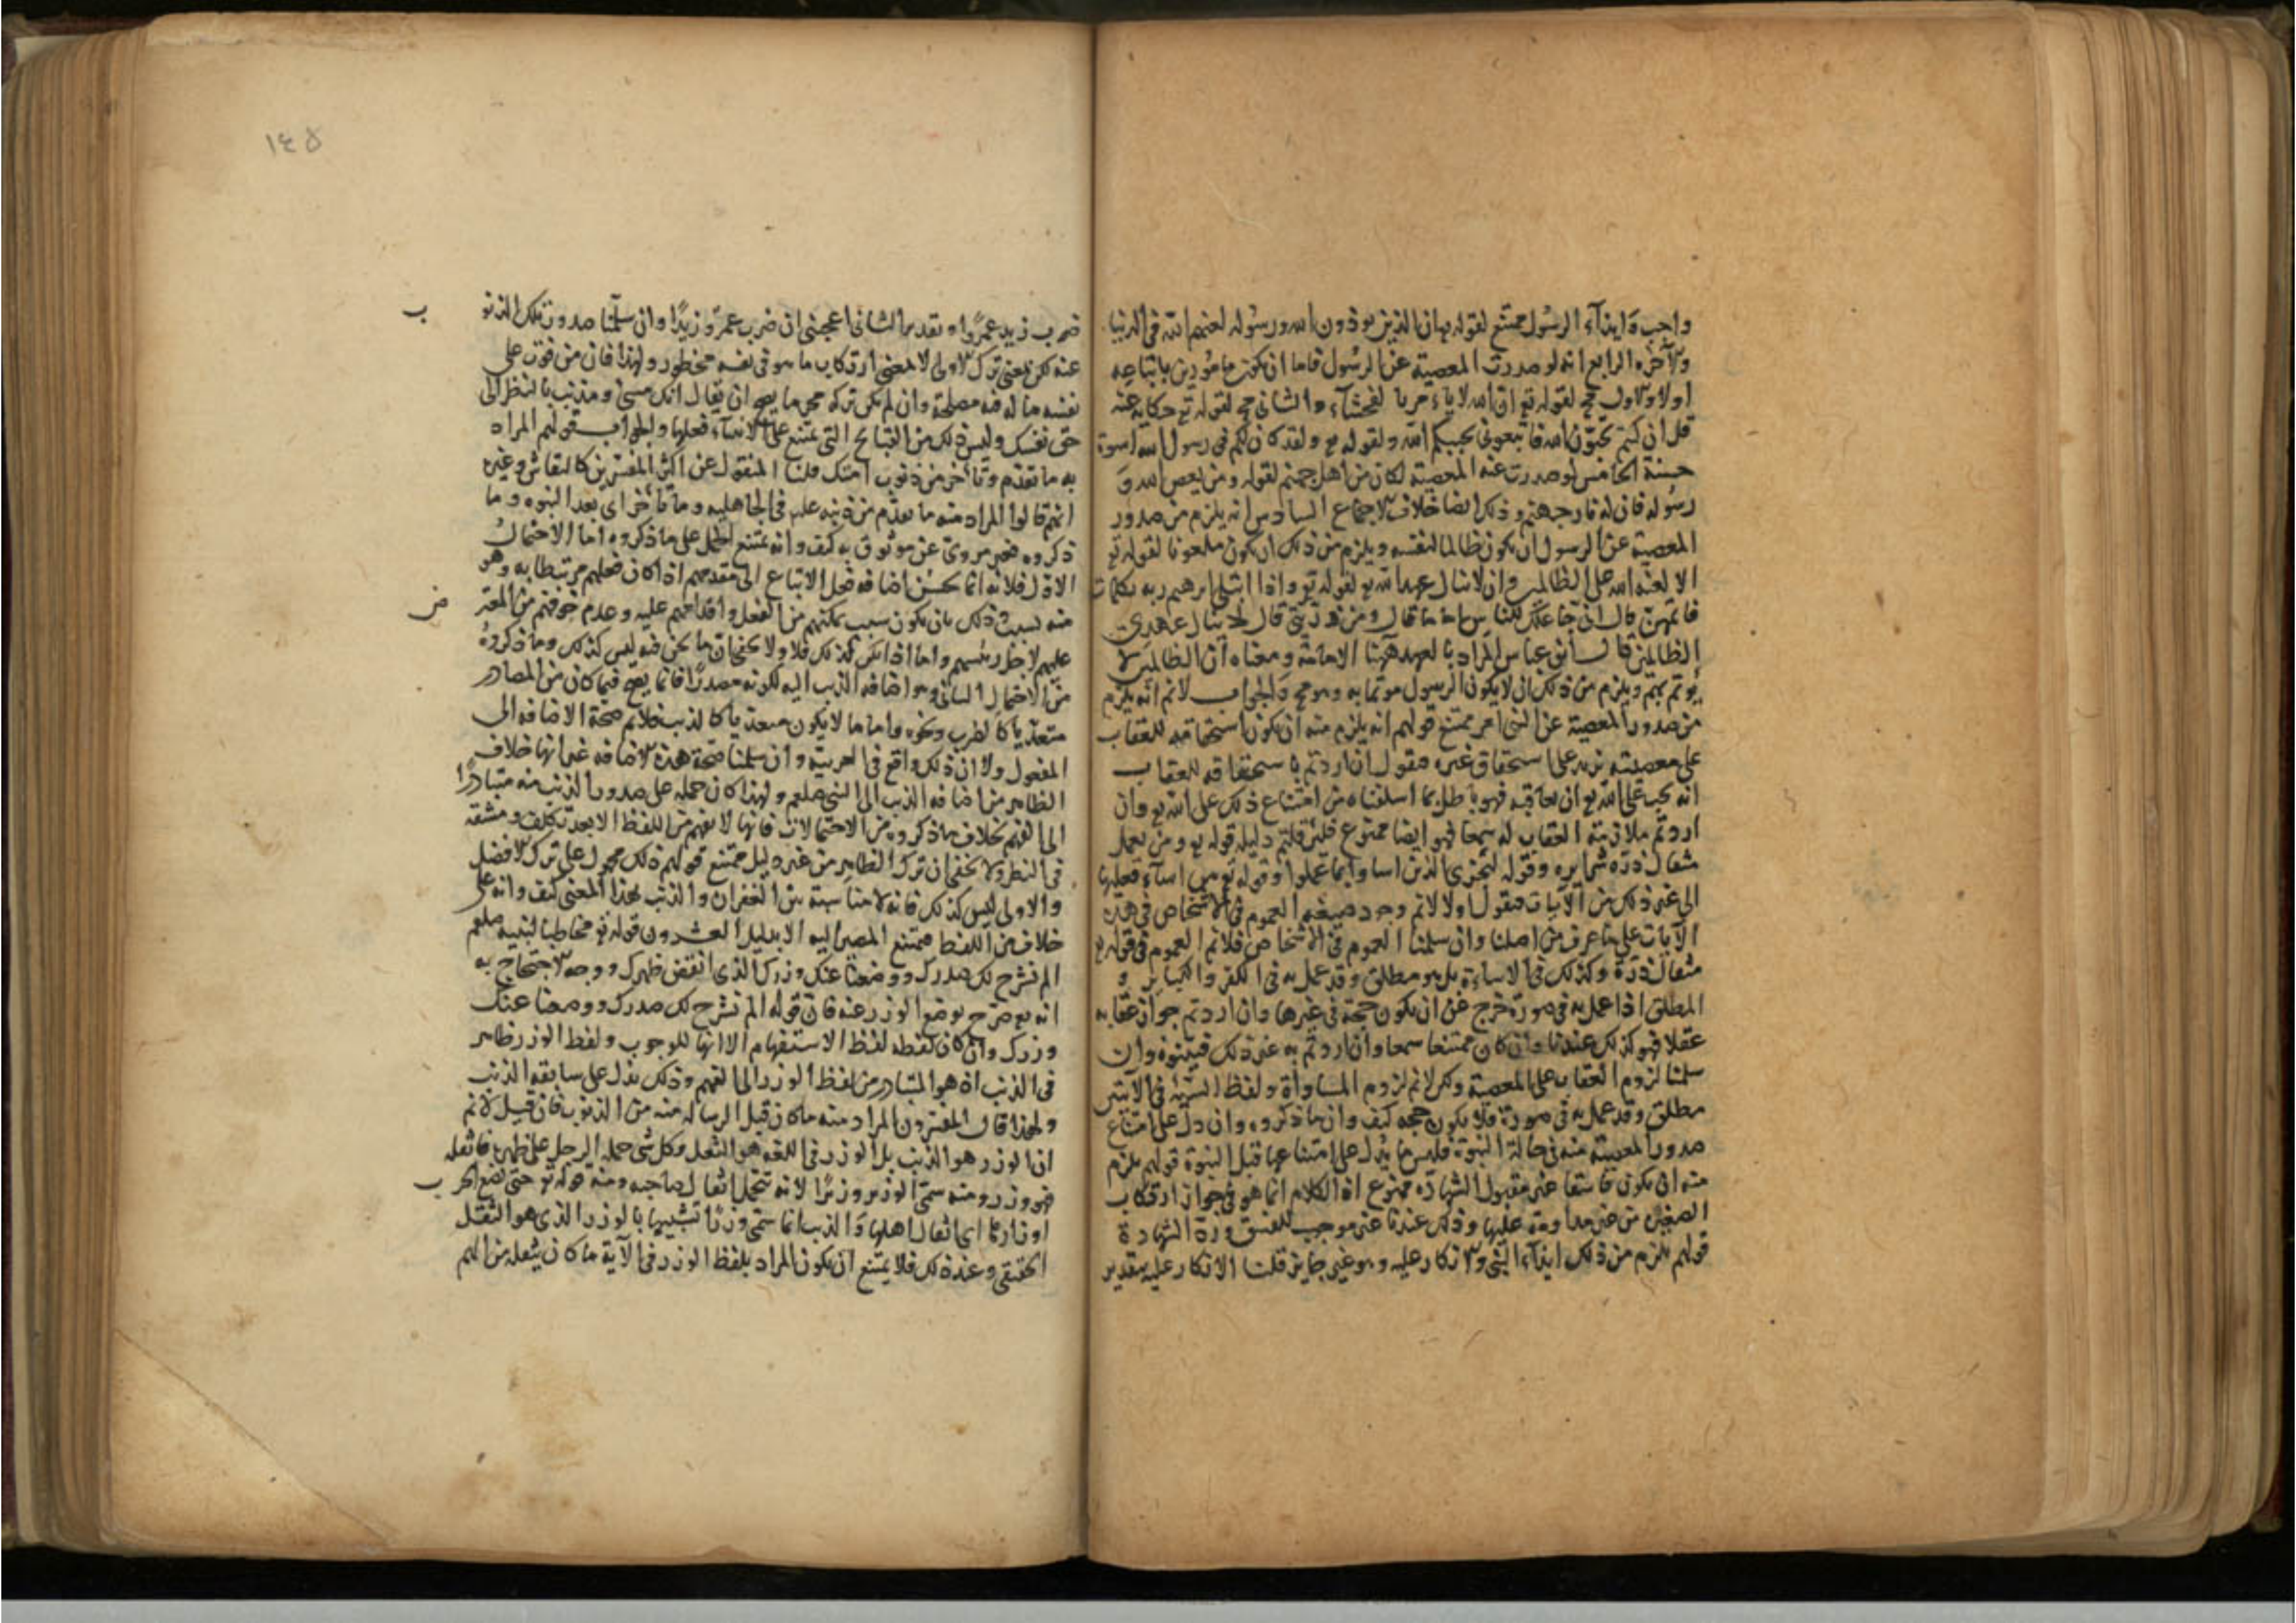 واجب وايذاء الرسول ممتنع لقوله تع ان الذين يوذون الله ورسوله لعنهم الله في الدنيا
والآخرة الرابع انه لو صدرت المعصية عن الرسول فاما ان نكون مامورين باتباعه
اولا والاول مح لقوله تع ان الله لا يامر بالفحشاء والثاني مح لقوله تع حكاية عنه
قل ان كنتم تحبون الله فاتبعوني يحببكم الله ولقوله تع ولقد كان لكم في رسول الله اسوة
حسنة الخامس لو صدرت عنه المعصية لكان من اهل جهنم لقوله ومن يعص الله و
رسوله فان له نار جهنم وذلك ايضا خلاف الاجماع السادس انه يلزم من صدور
المعصية عن الرسول ان يكون ظالما لنفسه ويلزم من ذلك ان يكون ملعونا لقوله تع
الا لعنة الله على الظالمين وان لا ينال عهد الله تع لقوله تع واذا ابتلى ابرهيم ربه بكلمات
فاتمهن قال اني جاعلك للناس اماما قال ومن ذريتي قال لا ينال عهدي
الظالمين قال ابن عباس المراد بالعهد ههنا الامامة ومعناه ان الظالمين لا
يوتم بهم ويلزم من ذلك ان لا يكون الرسول موتما به وهو مح والجواب لا نم انه يلزم
من صدور المعصية عن النبي امر ممتنع قولهم انه يلزم منه ان يكون استحقاقه للعقاب
على معصيته يزيد على استحقاق غيره فنقول ان اردتم باستحقاقه للعقاب
انه يجب على الله تع ان يعاقبه فهو باطل بما اسلفناه من امتناع ذلك على الله تع وان
اردتم ملازمة العقاب له سمعا فهو ايضا ممنوع فلئن قلتم دليله قوله تع ومن يعمل
مثقال ذرة شرا يره وقوله ليجزي الذين اساوا بما عملوا وقوله تع من اساء فعليها
الى غير ذلك من الآيات فنقول اولا لا نم وجود صيغة العموم في الاشخاص في هذه
الآيات على ما عرف من اصلنا وان سلمنا العموم في الاشخاص فلا نم العموم في قوله تع
مثقال ذرة وكذلك في الاساءة بل هو مطلق وقد عمل به في الكفر والكبائر و
المطلق اذا عمل به في صورة خرج عن ان يكون حجة في غيرها وان اردتم جواز عقابه
عقلا فهو كذلك عندنا وان كان ممتنعا سمعا وان اردتم به غير ذلك فبينوه وان
سلمنا لزوم العقاب على المعصية ولكن لا نم لزوم المساواة ولفظ السيئة في الآيتين
مطلق وقد عمل به في صورة فلا يكون حجه كيف وان ما ذكروه وان دل على امتناع
صدور المعصية منه في حالة النبوة فليس ما يدل على امتناعها قبل النبوة قولهم يلزم
منه ان يكون فاسقا غير مقبول الشهادة ممنوع اذ الكلام انما هو في جواز ارتكاب
الصغير من غير مداومة عليها وذلك عندنا غير موجب للفسق ورد الشهادة
قولهم يلزم من ذلك ايذاء النبي والانكار عليه وهو غير جايز قلنا الانكار عليه بتقدير
١٤٥
ضرب زيد عمرًوا وتقديرالثاني اعجبني ان ضرب عمرٌو زيدًا وان سلمنا صدور تلك الذنو
ب
عنه لكن بمعنى ترك الاولى لا بمعنى ارتكاب ما هو في نفسه محظور ولهذا فان من فوت على
نفسه ما له فيه مصلحة وان لم يكن تركه محرما يصح ان يقال انك مسئ ومذنب بالنظر الى
حق نفسك وليس ذلك من القبائح التي يمتنع على الانبياء فعلها والجواب قولهم المراد
به ما تقدم وتأخر من ذنوب امتك قلنا المنقول عن اكثر المفسرين كالنقاش وغيره
انهم قالوا المراد منه ما تقدم من ذنبه عليه في الجاهليه وما تأخر اى بعد النبوه وما
ذكروه فغير مروى عن موثوق به كيف وانه يمتنع الحمل على ما ذكروه اما الاحتمال
الاول فلانه انما يحسن اضافه فعل الاتباع الى مقدمهم اذا كان فعلهم مرتبطا به وهو
منه بسبب وذلك بان يكون سبب تمكنهم من الفعل واقدامهم عليه وعدم خوفهم من المعتر
ض
عليهم لاجل رئيسهم واما اذا لم يكن كذلك فلا ولا يخفى ان ما نحن فيه ليس كذلك وما ذكروه
من الاحتمال الثاني وهو اضافه الذنب اليه لكونه مصدرًا فانما يصح فيما كان من المصادر
متعديًا كالضرب ونحوه واما ما لا يكون متعديا كالذنب فلا نم صحة الاضافه الى
المفعول ولا ان ذلك واقع في العربية وان سلمنا صحة هذه الاضافه غير انها خلاف
الظاهر من اضافه الذنب الى النبي صلعم ولهذا كان حمله على صدور الذنب منه متبادرًا
الى الفهم بخلاف ما ذكروه من الاحتمالات فانها لا تفهم من اللفظ الا بعد تكلف ومشقه
في النظر ولا يخفى ان ترك الظاهر من غير دليل ممتنع قولهم ذلك محمول على ترك الافضل
والاولى ليس كذلك فانه لا مناسبة بين الغفران والذنب بهذا المعنى كيف وانه على
خلاف من اللفظ فيمتنع المصير اليه الا بدليل العشرون قوله تع مخاطبا لنبيه صلعم
الم نشرح لك صدرك ووضعنا عنك وزرك الذي انقض ظهرك ووجه الاحتجاج به
انه تع صرح بوضع الوزر عنه فان قوله الم نشرح لك صدرك ووضعنا عنك
وزرك وان كان لفظه لفظ الاستفهام الا انها للوجوب ولفظ الوزر ظاهر
في الذنب اذ هو المتبادر من لفظ الوزر الى الفهم وذلك يدل على سابقه الذنب
ولهذا قال المفسرون المراد منه ما كان قبل الرساله منه من الذنوب فان قيل لا نم
ان الوزر هو الذنب بل الوزر في اللغه هو الثقل وكل شى حمله الرجل على ظهره فاثقله
فهو وزر ومنه سمى الوزير وزيرًا لانه يتحمل اثقال صاحبه ومنه قوله تع حتى تضع الحر
ب
اوزارها اى اثقال اهلها والذنب انما سمى وزرًا تشبيها بالوزر الذي هو الثقل
الحقيقي وعند ذلك فلا يمتنع ان يكون المراد بلفظ الوزر في الآية ما كان يثقله من الهم